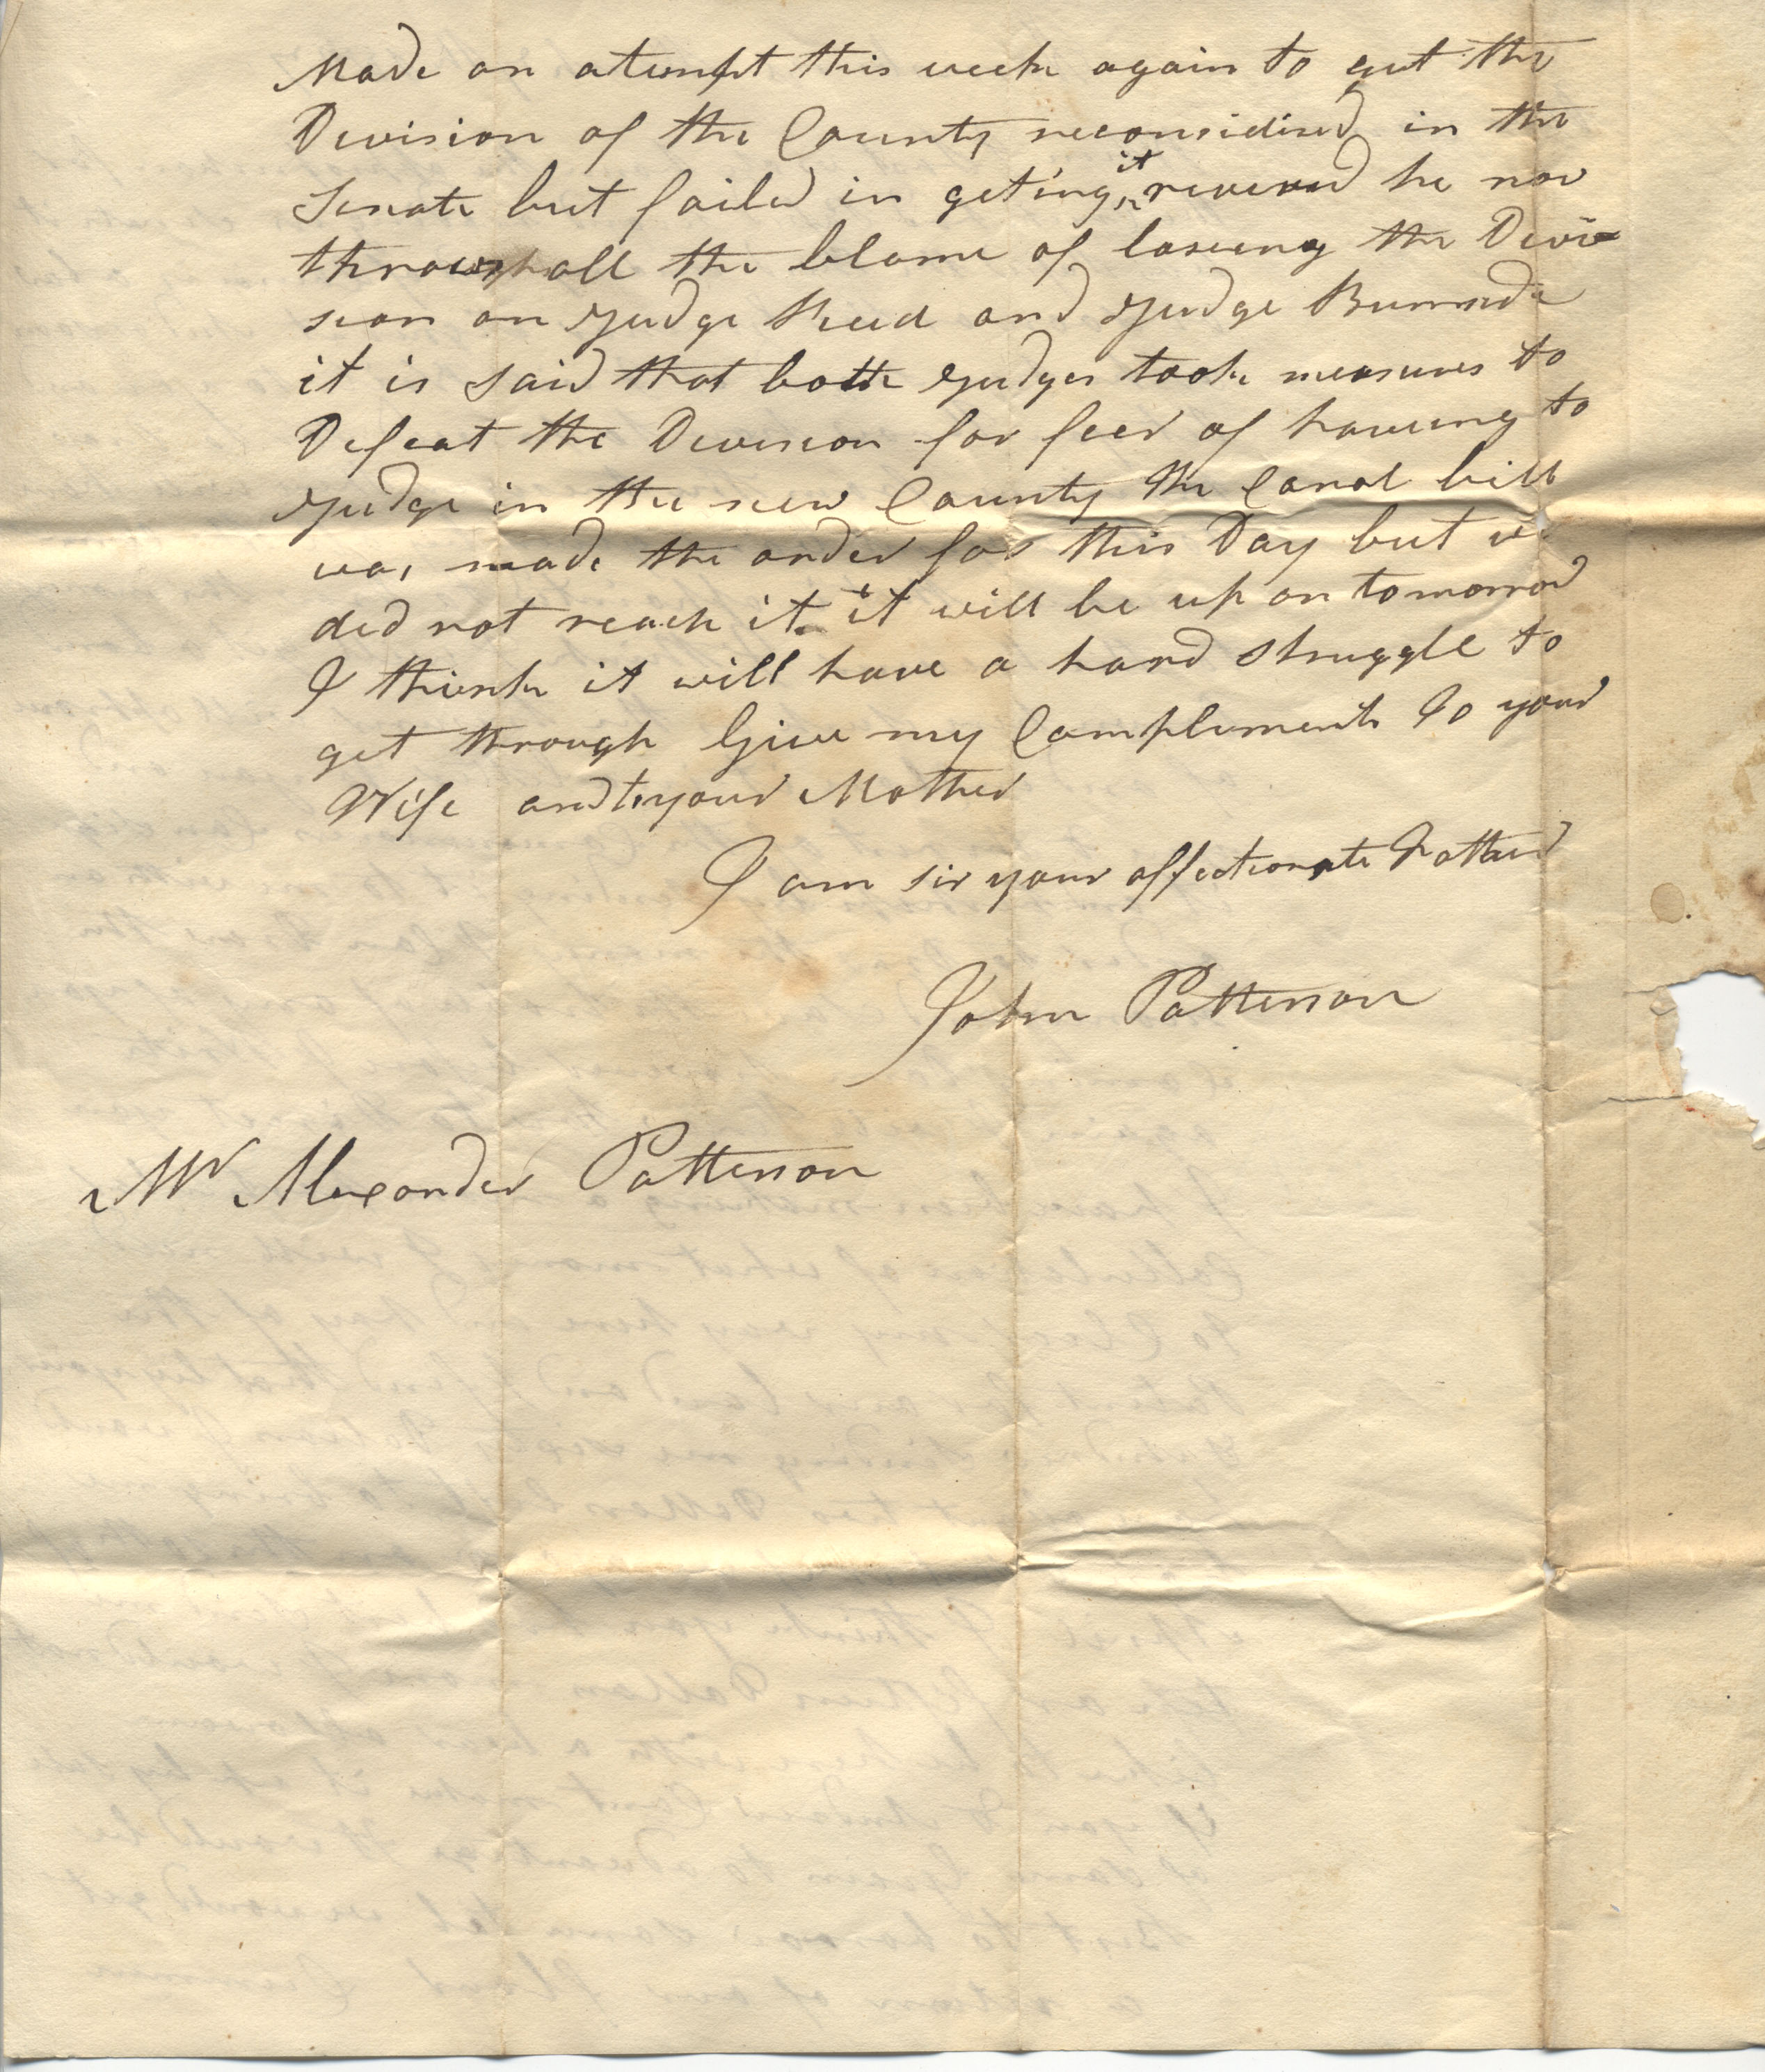 Made an atempt this week again to get the
Division of the County reconsidired in the
Senate but failed in geting it revewd he now
throws all the blame of loseing the Divi=
sion on Judge Reed and Judge Burnside
it is said that both Judges took measures to
Defeat the Devision for feer of haveing to
Judge in the new County The Canal bill
was made the order for this Day but we
did not reach it it will be up on tomorrow
I think it will have a hard struggle to
get through Give my Compliments to your
Wife and to your Mother
I am sir your affectionate Father
John Patterson
Mr Alexander Patterson